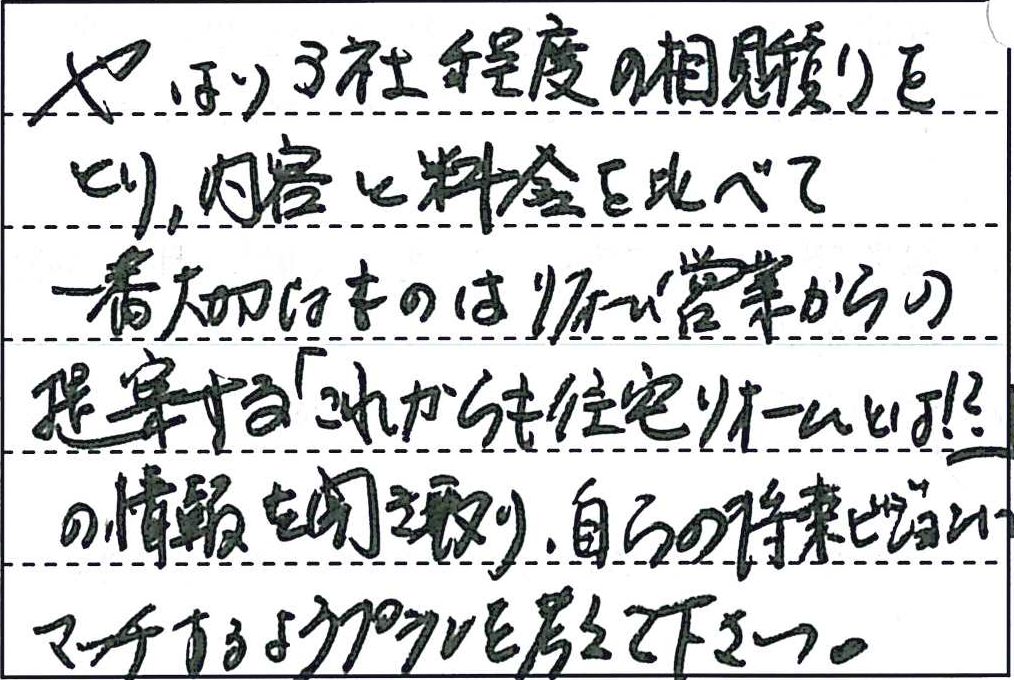 やはり3社程度の相見積りを
とり、内容と料金を比べて
一番大切なものはリフォーム営業からの
提案する「これからも住宅リフォームとは!?」
の情報を聞き取り、自らの将来ビジョンに
マッチするようプランを考えて下さい。